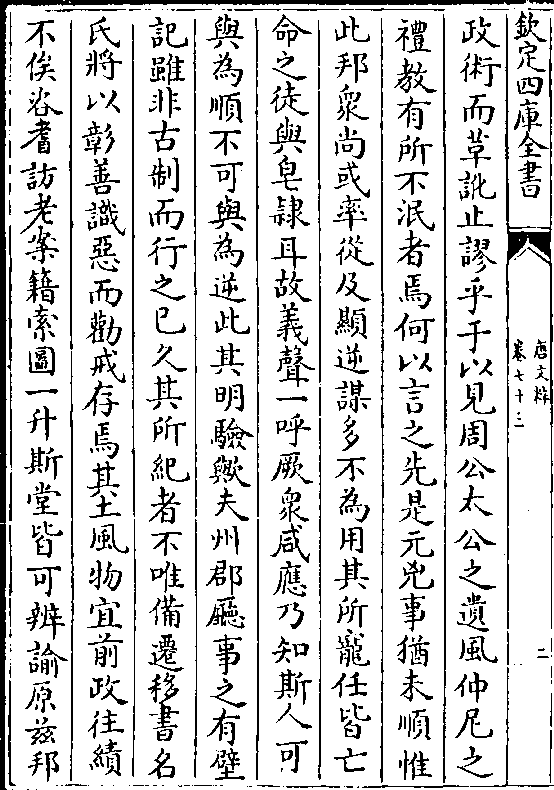 欽定四庫全書
唐文粹
卷七十三
二
政術而草訛止謬乎于以見周公太公之遺風仲尼之
禮教有所不泯者焉何以言之先是元兇事猶未順惟
此邦衆尚或率從及顯逆謀多不為用其所寵任皆亡
命之徒與皂隷耳故義聲一呼厥衆咸應乃知斯人可
與為順不可與為逆此其明驗歟夫州郡廳事之有壁
記雖非古制而行之已久其所紀者不唯備遷移書名
氏將以彰善識惡而勸戒存焉其土風物宜前政往績
不俟咨耆訪老案籍索圖一升斯堂皆可辨諭原兹邦